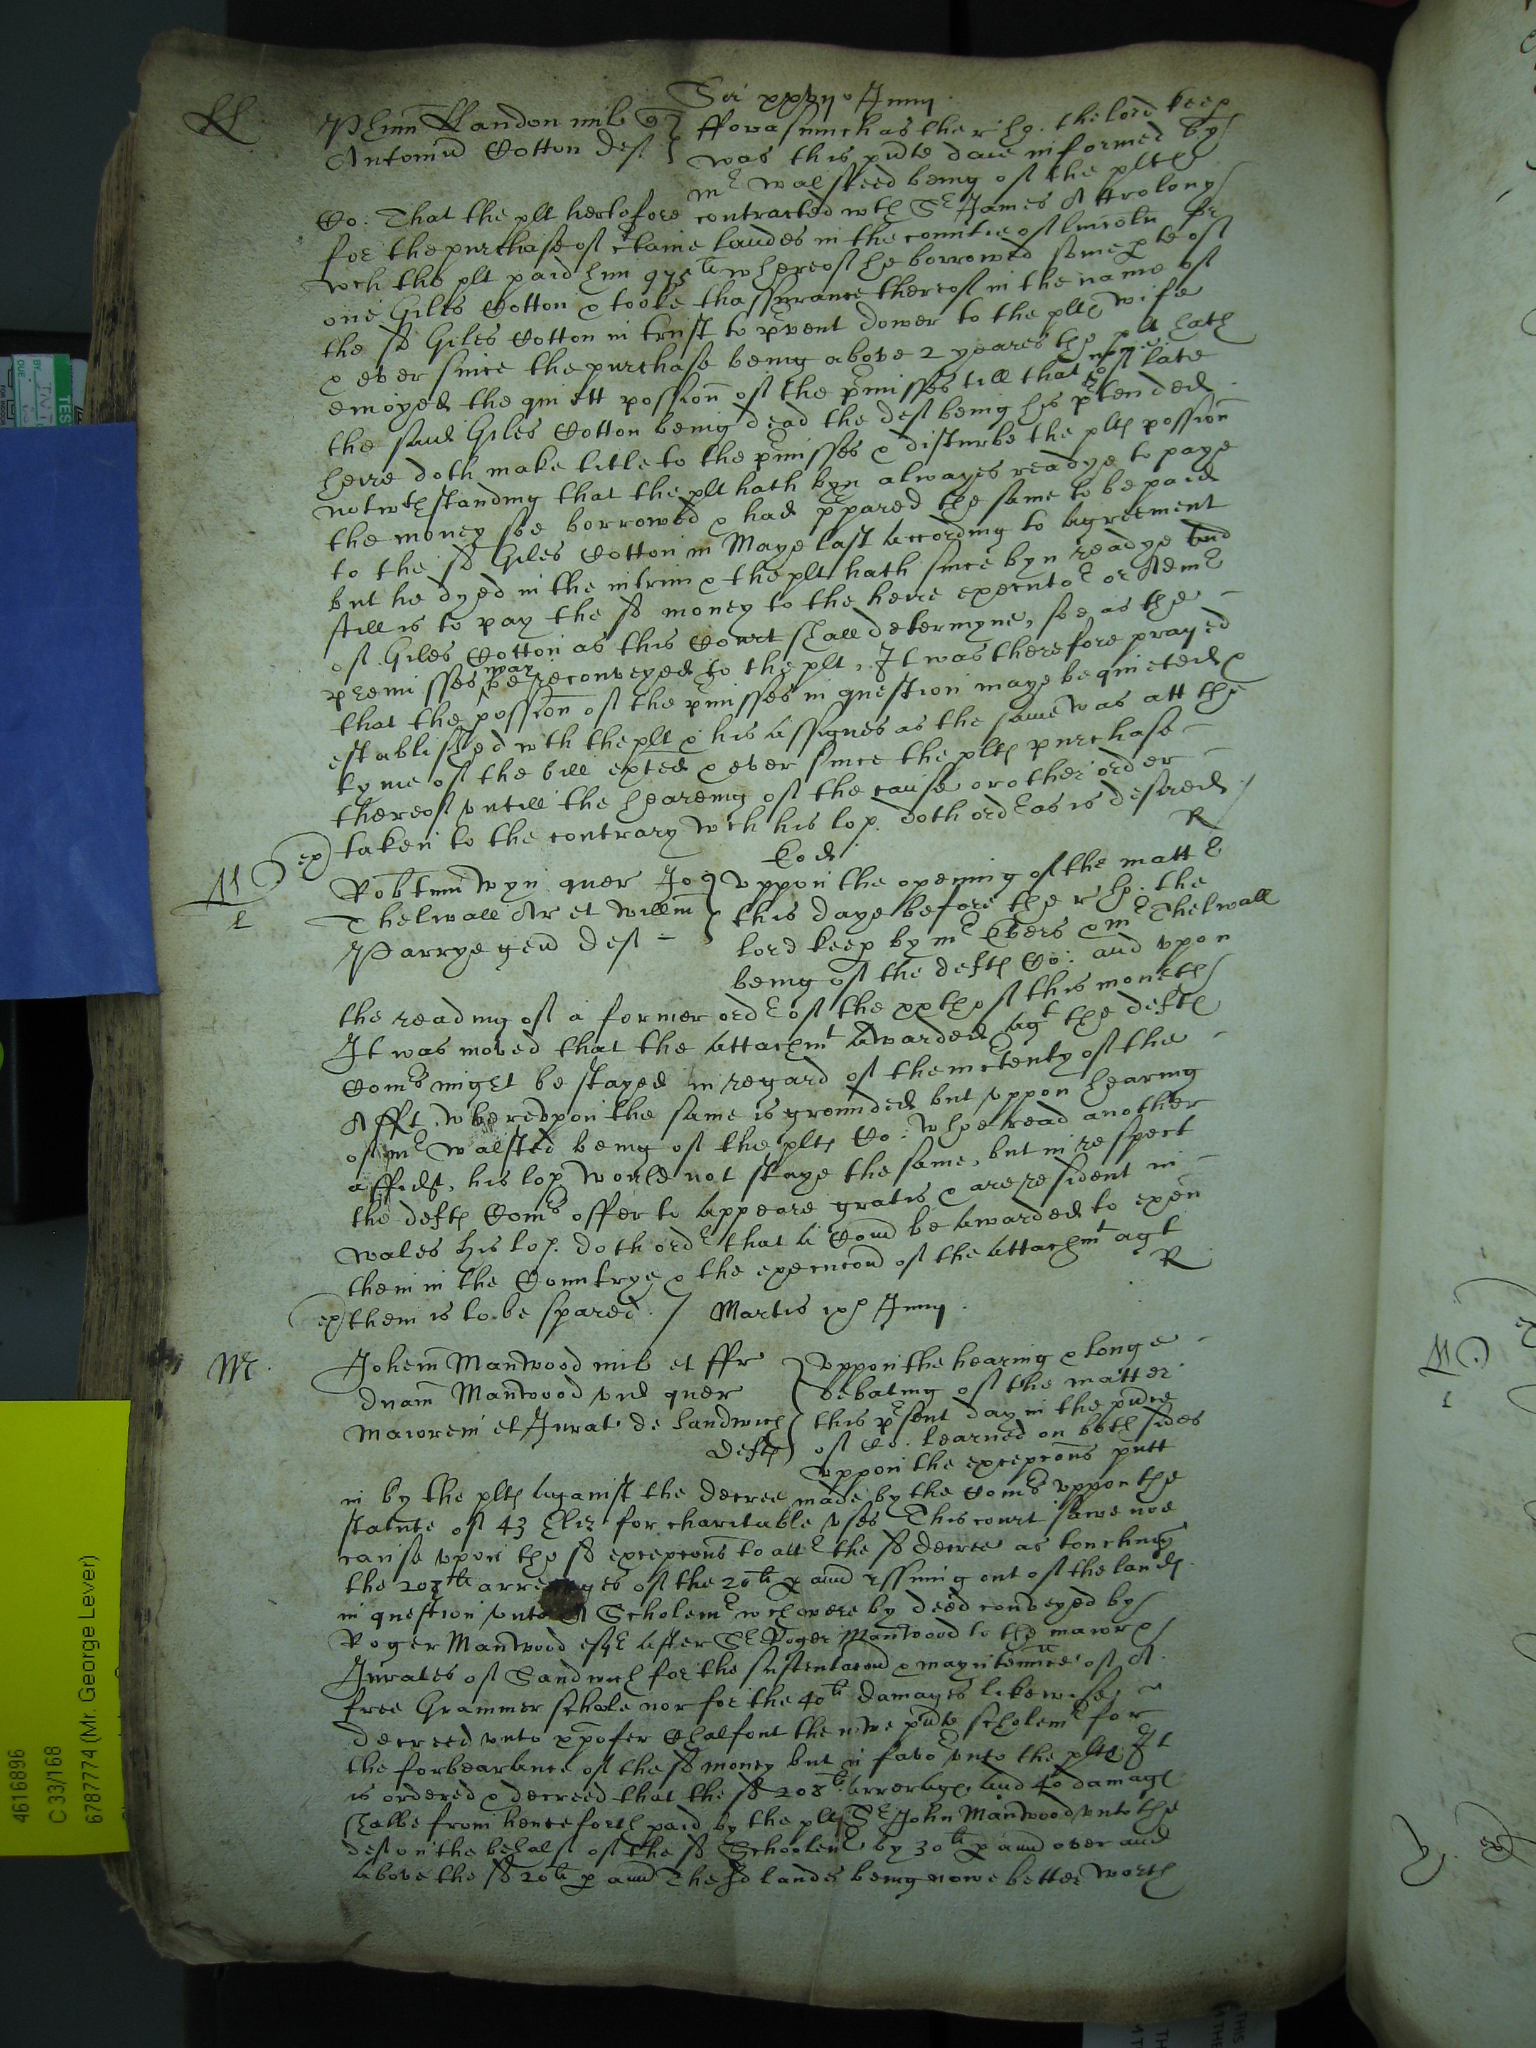 Sci xxvijo Junij
Ll
Phum Landon mil q
Antoniu Cotton deft
fforasmuch as the r. ho. the lord keep
was this pnte daie informed by
mr walsteed being of the pltes
Co: That the plt heretofore contracted wth Sr James A
for the purchase of ctaine landes in the countie of lincoln for
wch the plt paid him 975li whereof he borrowed some pte of
one Giles Cotton & tooke thassurance thereof in the name of
the sd Giles Cotton in trust to pvent dower to the pltes wife
& ever since the purchase being above 2 yeares the plt hath
enioyed the quiett possion of the pmisses till that nowe of late
the said Giles Cotton being dead the deft being his ptended
heire doth make title to the pmisses & disturbe the pltes possion
notwthstanding that the plt hath byn alwayes readye to paye
the money soe borrowed & had ppared the same to be paid
to the sd Giles Cotton in Maye last according to agreement
but he dyed in the intrim & the plt hath since byn readye and
still is to pay the sd money to the heire executor or Admr
of Giles Cotton as this Court shall determyne, soe as the
premisses may be reconveyed to the plt, It was therefore prayed
that the possion of the pmisses in question maye be quieted &
established wth the plt & his assignes as the same was att the
tyme of the bill exted & ever since the pltes purchase
thereof untill the heareing of the cause or other order
taken to the contrary wch his lop. doth ordr as is desired
ex R
Eod
Robtum wyn quer Jo
Thelwall Ar et Willm
Parrye gen deft
Uppon the opening of the mattr
this daye before the r. ho. the
lord keep by mr Evers & mr Thelwall
being of the deftes Co: and upon
the reading of a former ordr of the xxth of this moneth
It was moved that the attachmt awarded agt the deftes
Coms might be stayed in regard of the inctenty of the
Afft. whereupon the same is grounded but uppon hearing
of mr walsted being of the pltes Co: whoe read another
affidt, his lop would not staye the same, but in respect
the deftes Coms offer to appeare gratis & are resident in
wales his lop. doth ordr that a Com be awarded to exen
them in the Countrye & the execucon of the attachmt agt
ex them is to be spared. R
Martis ixo Junij
Mr.
Johem Manwood mil et ffr
dnam Manwood vid quer
Maiorem et Jurat de Sandwich
deftes
Uppon the hearing & longe
debating of the matter
this psent day in the pnce
of Co. learned on both sides
uppon the excepcons putt
in by the pltes against the decree made by the Coms uppon the
statute of 43 Eliz for charitable uses This court sawe noe
cause upon the sd excepcons to altr the sd decree as touching
the 208li arrerages of the 20li p ann issuing out of the landes
in question unto A Scholemr wch were by deed conveyed by
Roger Manwood esqr after Sr Roger Manwood to the maior &
Jurates of Sandwich for the sustentacon & mayntennce of A
free Grammer schole nor for the 40li damages likewise
decreed unto xpofer Chalfont the nowe pnte scholemr for
the forbearance of the sd money but in favor unto the pltes It
is ordered & decreed that the sd 208li arrerages and 40 damages
shalbe from henceforth paid by the plt Sr John Manwood unto the
deft on the behalf of the sd Schoolemr by 30li p ann over and
above the sd 20li p ann The sd landes being nowe better worth
4616896
C 33/168
6787774 (Mr. George Lever)